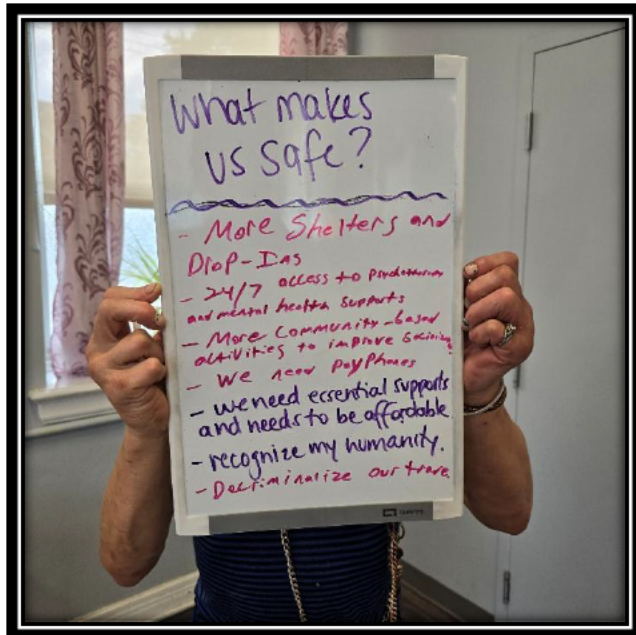 What makes
us safe?
- More Shelters and
Drop-Ins
- 24/7 access to
and mental health supports
- More Community-based
activities to improve
- We need payPhones
- we need essential supports
and needs to be affordable
- recognize my humanity.
- Decriminalize our trade